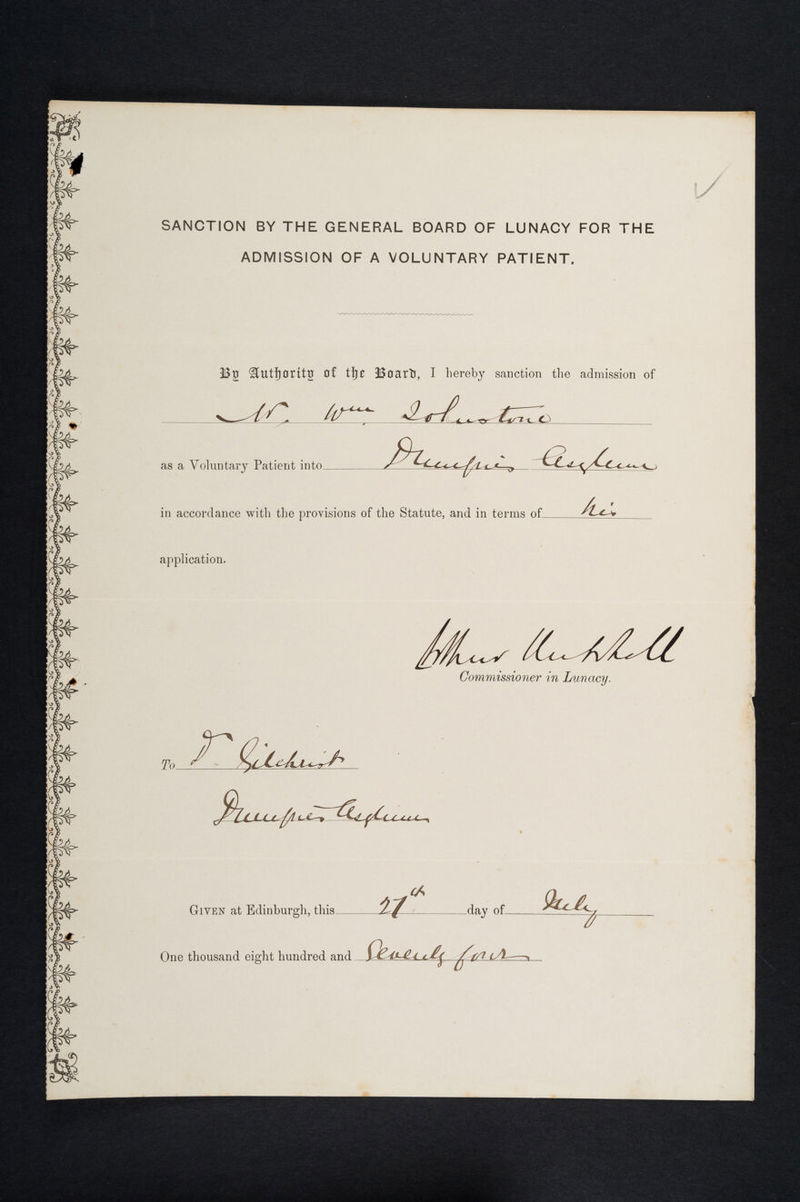 SANCTION BY THE GENERAL BOARD OF LUNACY FOR THE
ADMISSION OF A VOLUNTARY PATIENT.
By Authority of the Board, I hereby sanction the admission of
Mr. Wm Johnstone
as a Voluntary Patient into Dumfries Asylum
in accordance with the provisions of the Statute, and in terms of his
application.
Arthur Mitchell
Commissioner in Lunacy.
To Dr Gilchrist
Dumfries Asylum
GIVEN at Edinburgh, this 27th day of July
One thousand eight hundred and Seventy four